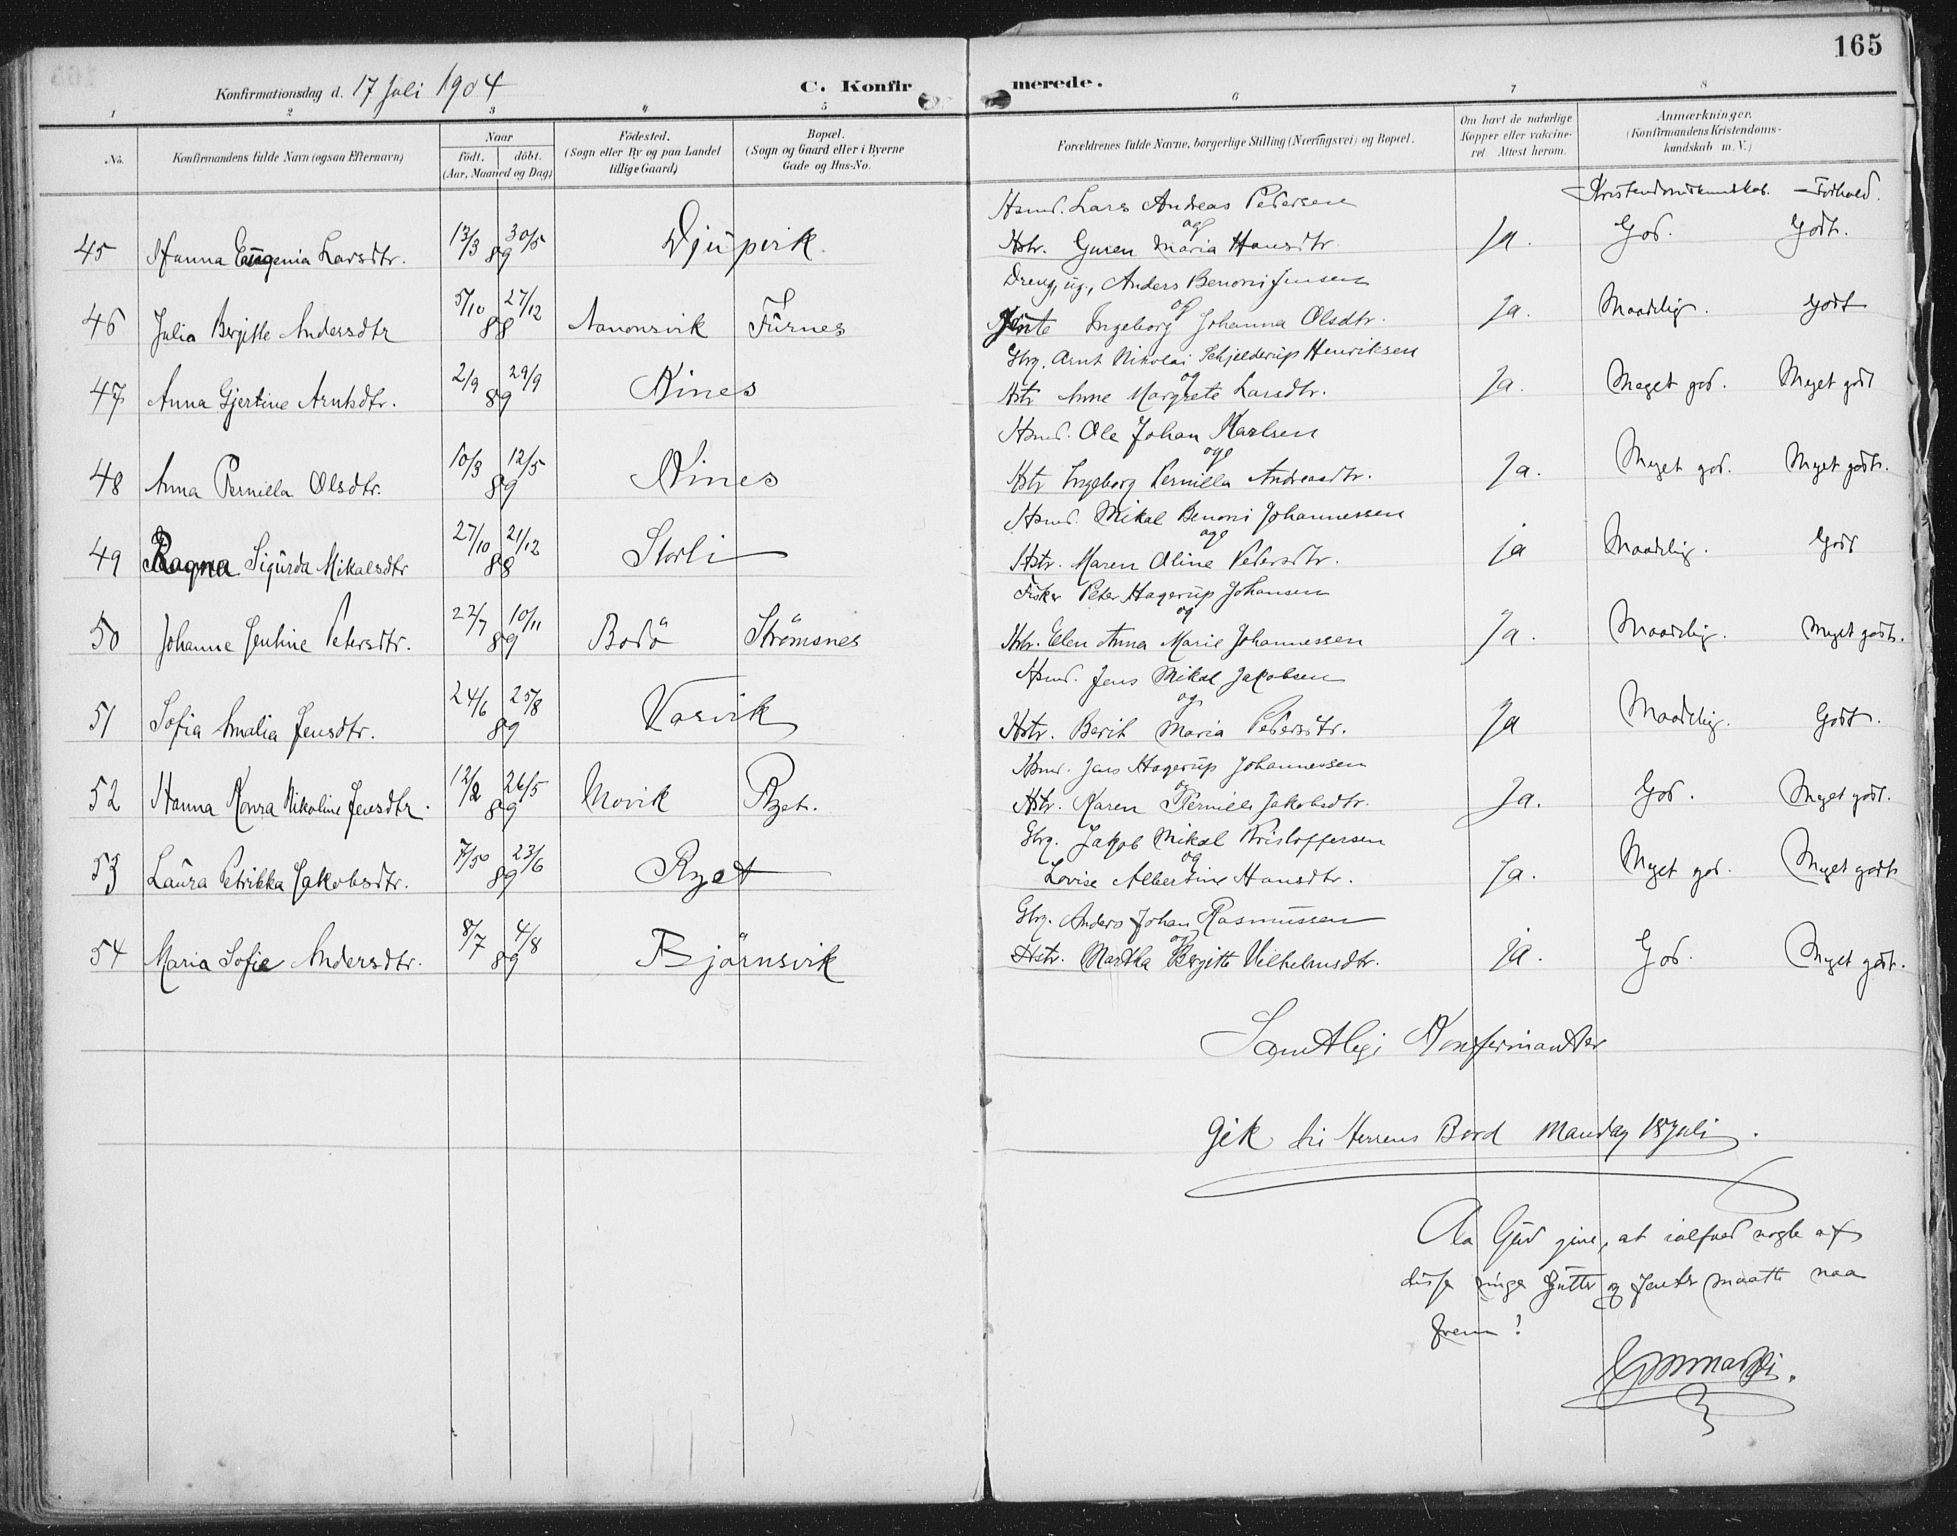 165
Konfirmationsdag d. 17 Juli 1904 C. Konfirmerede.
1 2 3 4 5 6 7 8
No. Konfirmandens fulde Navn (ogsaa Efternavn) Naar födt. döbt. (Aar, Maaned og Dag) Födested. (Sogn eller By og paa Landet tillige Gaard) Bopæl. (Sogn og Gaard eller i Byerne Gade og Hus-No. Forældrenes fulde Navne, borgerlige Stilling (Næringsvei) og Bopæl. Om havt de naturlige Kopper eller vakcineret. Attest herom. Anmærkninger. (Konfirmandens Kristendomskundskab m. V.)
Kristendomskundskab. Forhold.
Hsmd. Lars Andreas Pedersen
og
45 Hanna Eugenia Larsdtr. 13/3 30/5 89 Djupvik. Hstr. Guren Maria Hansdtr. Ja. God. Godt.
Dreng, ug., Anders Benoni Jensen
og
46 Julia Bergitte Andersdtr 5/10 27/12 88 Aanonsvik Furnes Jente Ingeborg Johanna Olsdtr. Ja. Maadelig. Godt
Gbrg. Arnt Nikolai Schjelderup Henriksen
og
47 Anna Gjertine Arntsdtr. 2/9 29/9 89 Nines Hstr Anne Margrete Larsdtr. Ja. Meget god. Meget godt
Hsmd. Ole Johan Karlsen
og
48 Anna Pernilla Olsdtr. 10/3 12/5 89 Nines Hstr Ingeborg Pernilla Andreasdtr. Ja. Meget god. Meget godt.
Hsmd. Mikal Benoni Johannessen
og
49 Ragna Sigurda Mikalsdtr 27/10 21/12 88 Storli Hstr. Maren Oline Pedersdtr. ja Maadelig. Godt
Fisker Peter Hagerup Johansen
og
50 Johanne Jentine Petersdtr. 22/7 10/11 89 Bodö Strømsnes Hstr. Elen Anna Marie Johannessen Ja. Maadelig. Meget godt.
Hsmd. Jens Mikal Jakobsen
og
51 Sofia Amalia Jensdtr. 24/6 25/8 89 Vasvik Hstr. Berit Maria Pedersdtr. Ja Maadelig. Godt.
Hsmd. Jens Hagerup Johannessen
og
52 Hanna Konra Nikoline Jensdtr. 12/2 26/5 89 Movik Ryet. Hstr. Karen Pernille Jakobsdtr. Ja. God. Meget godt.
Gbrg. Jakob Mikal Kristoffersen
og
53 Laura Petrikka Jakobsdtr. 23/6 89 Ryet Lovise Albertine Hansdtr. Ja. Meget god. Meget godt
Gbrg. Anders Johan Rasmussen
og
54 Maria Sofie Andersdtr. 8/7 4/8 89 Bjørnsvik Hstr. Martha Bergitte Vilhelmsdtr. ja. God. Meget godt.
Samtlige Konfirmanter
gik til Herrens Bord Mandag 18 Juli.
Aa Gud give, at ialfald nogle af
disse unge Gutter og Jenter maatte naa
frem!